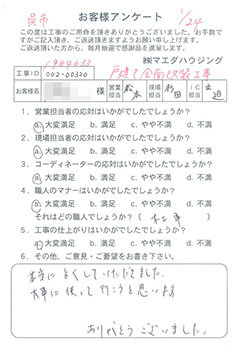 呉市
お客様アンケート
1/24
この度は工事のご用命を頂きありがとうございました。お手数で
すがご記入頂き、ご送頂きますようお願い申し上げます。
ご返送頂いた方から、毎月抽選で感謝品を進呈します。
㈱マエダハウジング
工事ID
002-00320
戸建て全面改装工事
お客様名
様
営業担当
松本
現場担当
杉田
IC担当
立通
1．営業担当者の応対はいかがでしたでしょうか？
a. 大変満足 b. 満足 c. やや不満 d. 不満
2．現場担当者の応対はいかがでしたでしょうか？
a. 大変満足 b. 満足 c. やや不満 d. 不満
3．コーディネーターの応対はいかがでしたでしょうか？
a. 大変満足 b. 満足 c. やや不満 d. 不満
4．職人のマナーはいかがでしたでしょうか？
a. 大変満足 b. 満足 c. やや不満 d. 不満
それはどの職人でしょうか？（ 木工事 ）
5．工事の仕上がりはいかがでしたでしょうか？
a. 大変満足 b. 満足 c. やや不満 d. 不満
6．その他、ご意見・ご要望をお書き下さい。
本当によくしていただきました。
大事に使って行こうと思います
ありがとうございました。